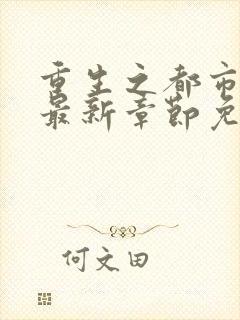 重生之都市
最新章节免
何文田